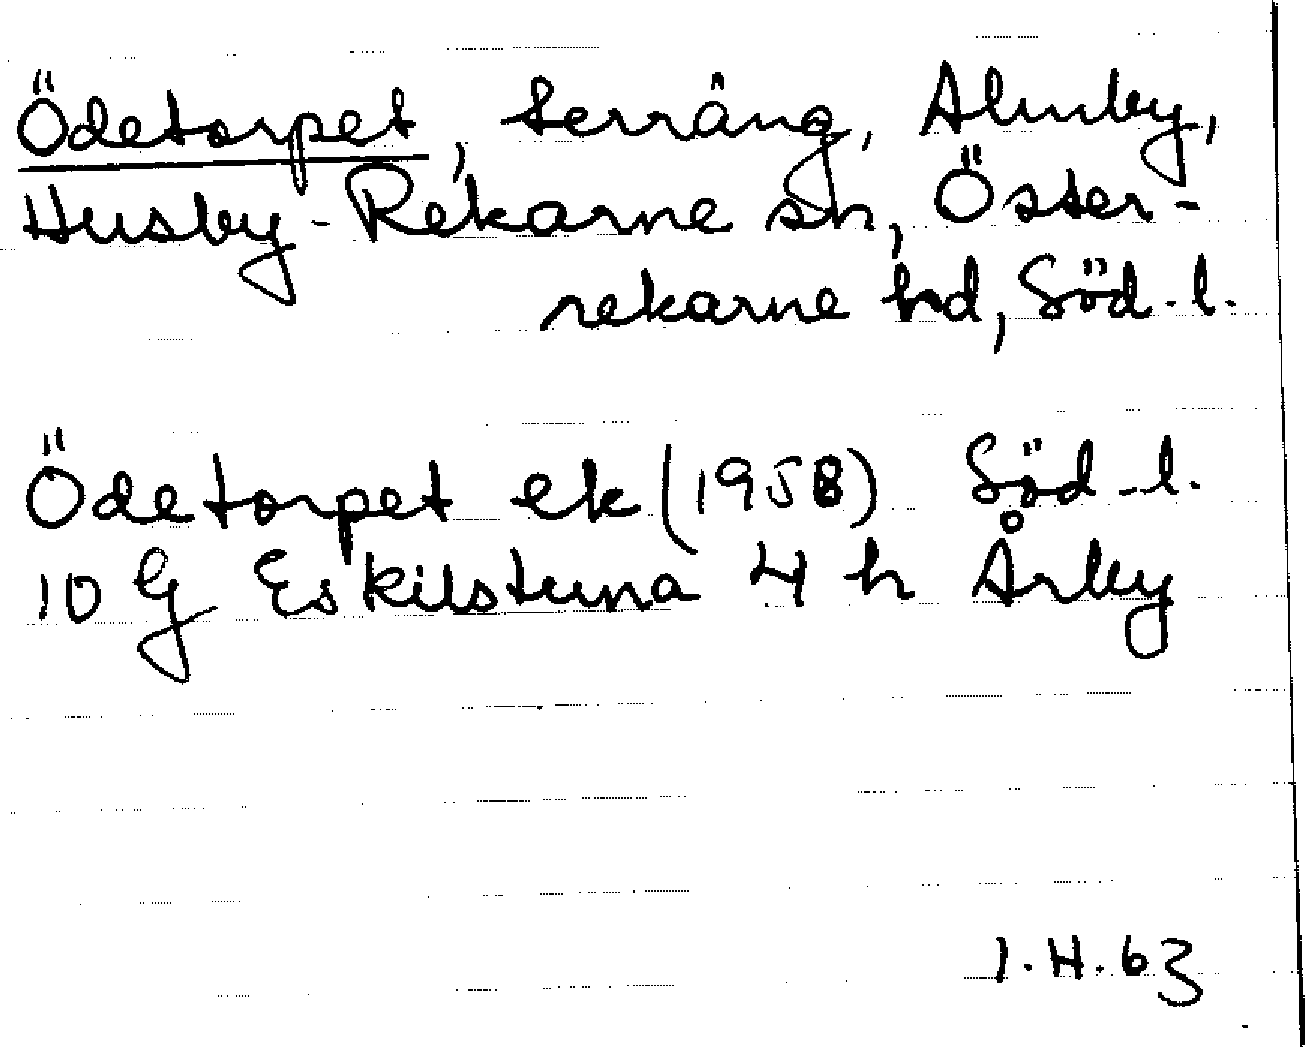 Ödetorpet, terräng, Almby,
Husby-Rekarne sn, Öster-
rekarne hd, Söd-l.
Ödetorpet ek (1958) Söd-l.
10 G Eskilstuna 4 h Årby
I.H.63